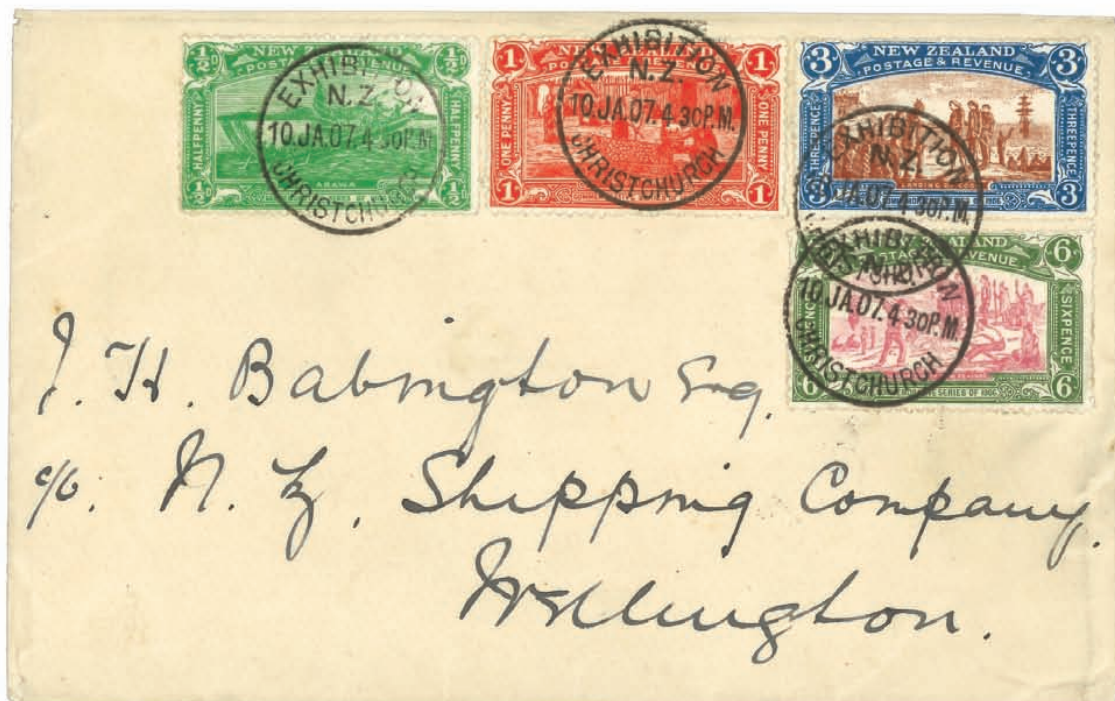 ½D NEW ZEALAND ½D
POSTAGE & REVENUE
HALFPENNY
HALFPENNY
ARAWA
½D ½D
EXHIBITION
N.Z.
10.JA.07.4 30P.M.
CHRISTCHURCH
1 NEW ZEALAND 1
POSTAGE & REVENUE
ONE PENNY
ONE PENNY
1 1
EXHIBITION
N.Z.
10.JA.07.4 30P.M.
CHRISTCHURCH
3 NEW ZEALAND 3
POSTAGE & REVENUE
THREEPENCE
THREEPENCE
LANDING
3 3
EXHIBITION
N.Z.
10.JA.07.4 30P.M.
CHRISTCHURCH
NEW ZEALAND 6
POSTAGE & REVENUE
SIXPENCE
6 SERIES OF 1906 6
EXHIBITION
N.Z.
10.JA.07.4 30P.M.
CHRISTCHURCH
J. H. Babington Esq.
c/o. N. Z. Shipping Company.
Wellington.